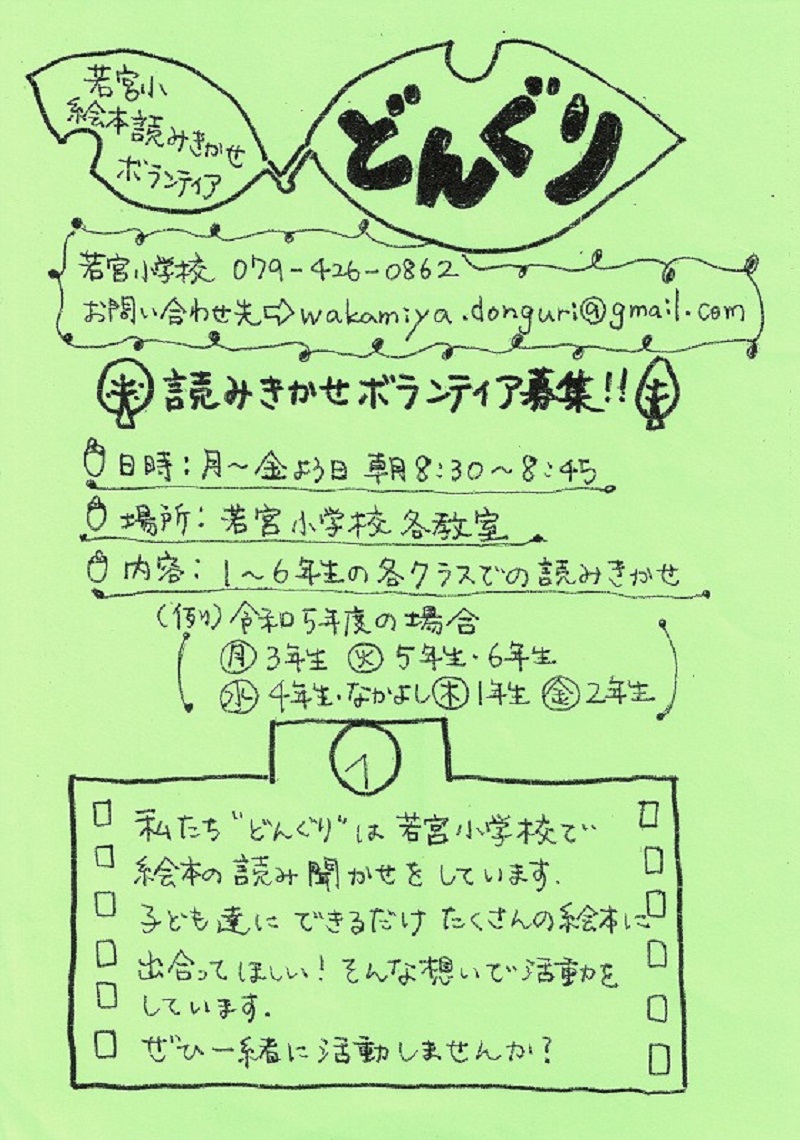 若宮小
絵本読みきかせ
ボランティア
どんぐり
若宮小学校 079-426-0862
お問い合わせ先⇨wakamiya.donguri@gmail.com
読みきかせボランティア募集!!
日時:月〜金よう日 朝8:30〜8:45
場所:若宮小学校 各教室
内容:1〜6年生の各クラスでの読みきかせ
(例)令和5年度の場合
㊊3年生 ㊋5年生・6年生
㊌4年生・なかよし㊍1年生 ㊎2年生
私たち"どんぐり"は若宮小学校で
絵本の読み聞かせをしています.
子ども達に できるだけ たくさんの絵本に
出合ってほしい!そんな想いで活動を
しています.
ぜひ一緒に活動しませんか?